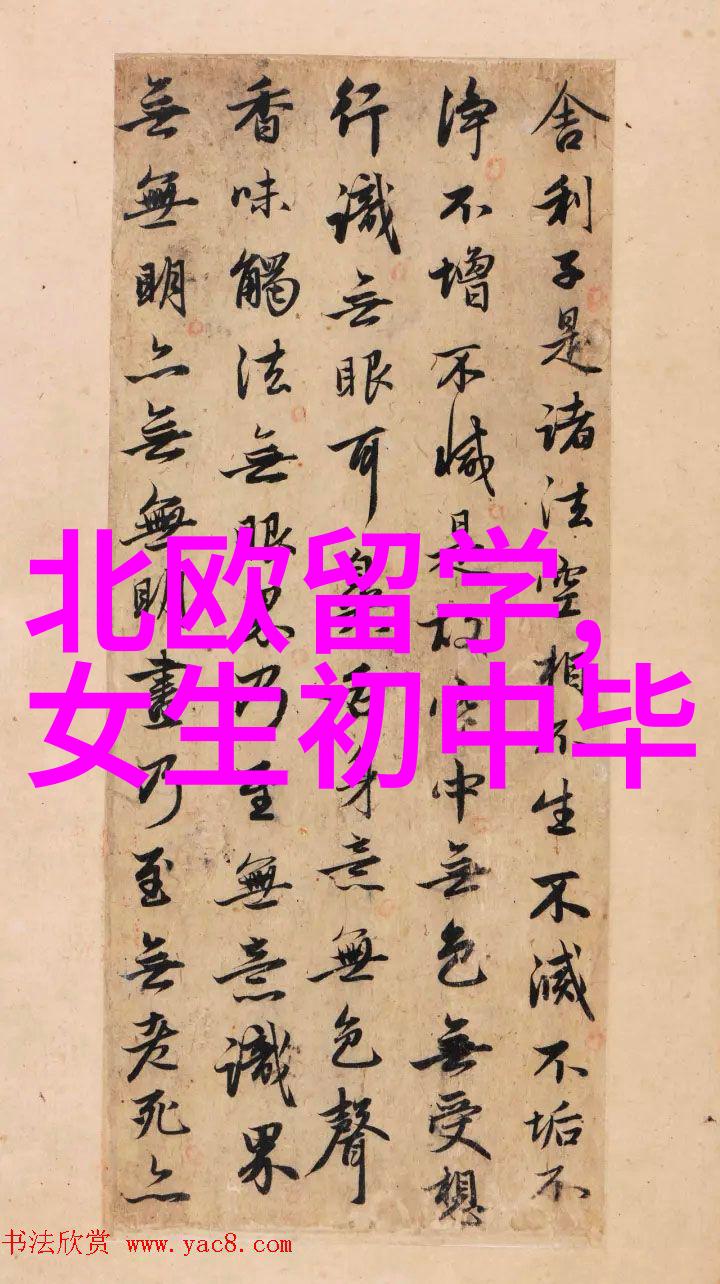 舍利子是诸法空相不生不滅不垢不
淨不增不減是故空中無色無受想
行識無眼耳鼻舌身意無色聲
香味觸法無眼界乃至無意識界
無無明亦無無明盡乃至無老死亦
北欧留学,
女生初中毕
书法欣赏 www.yac8.com